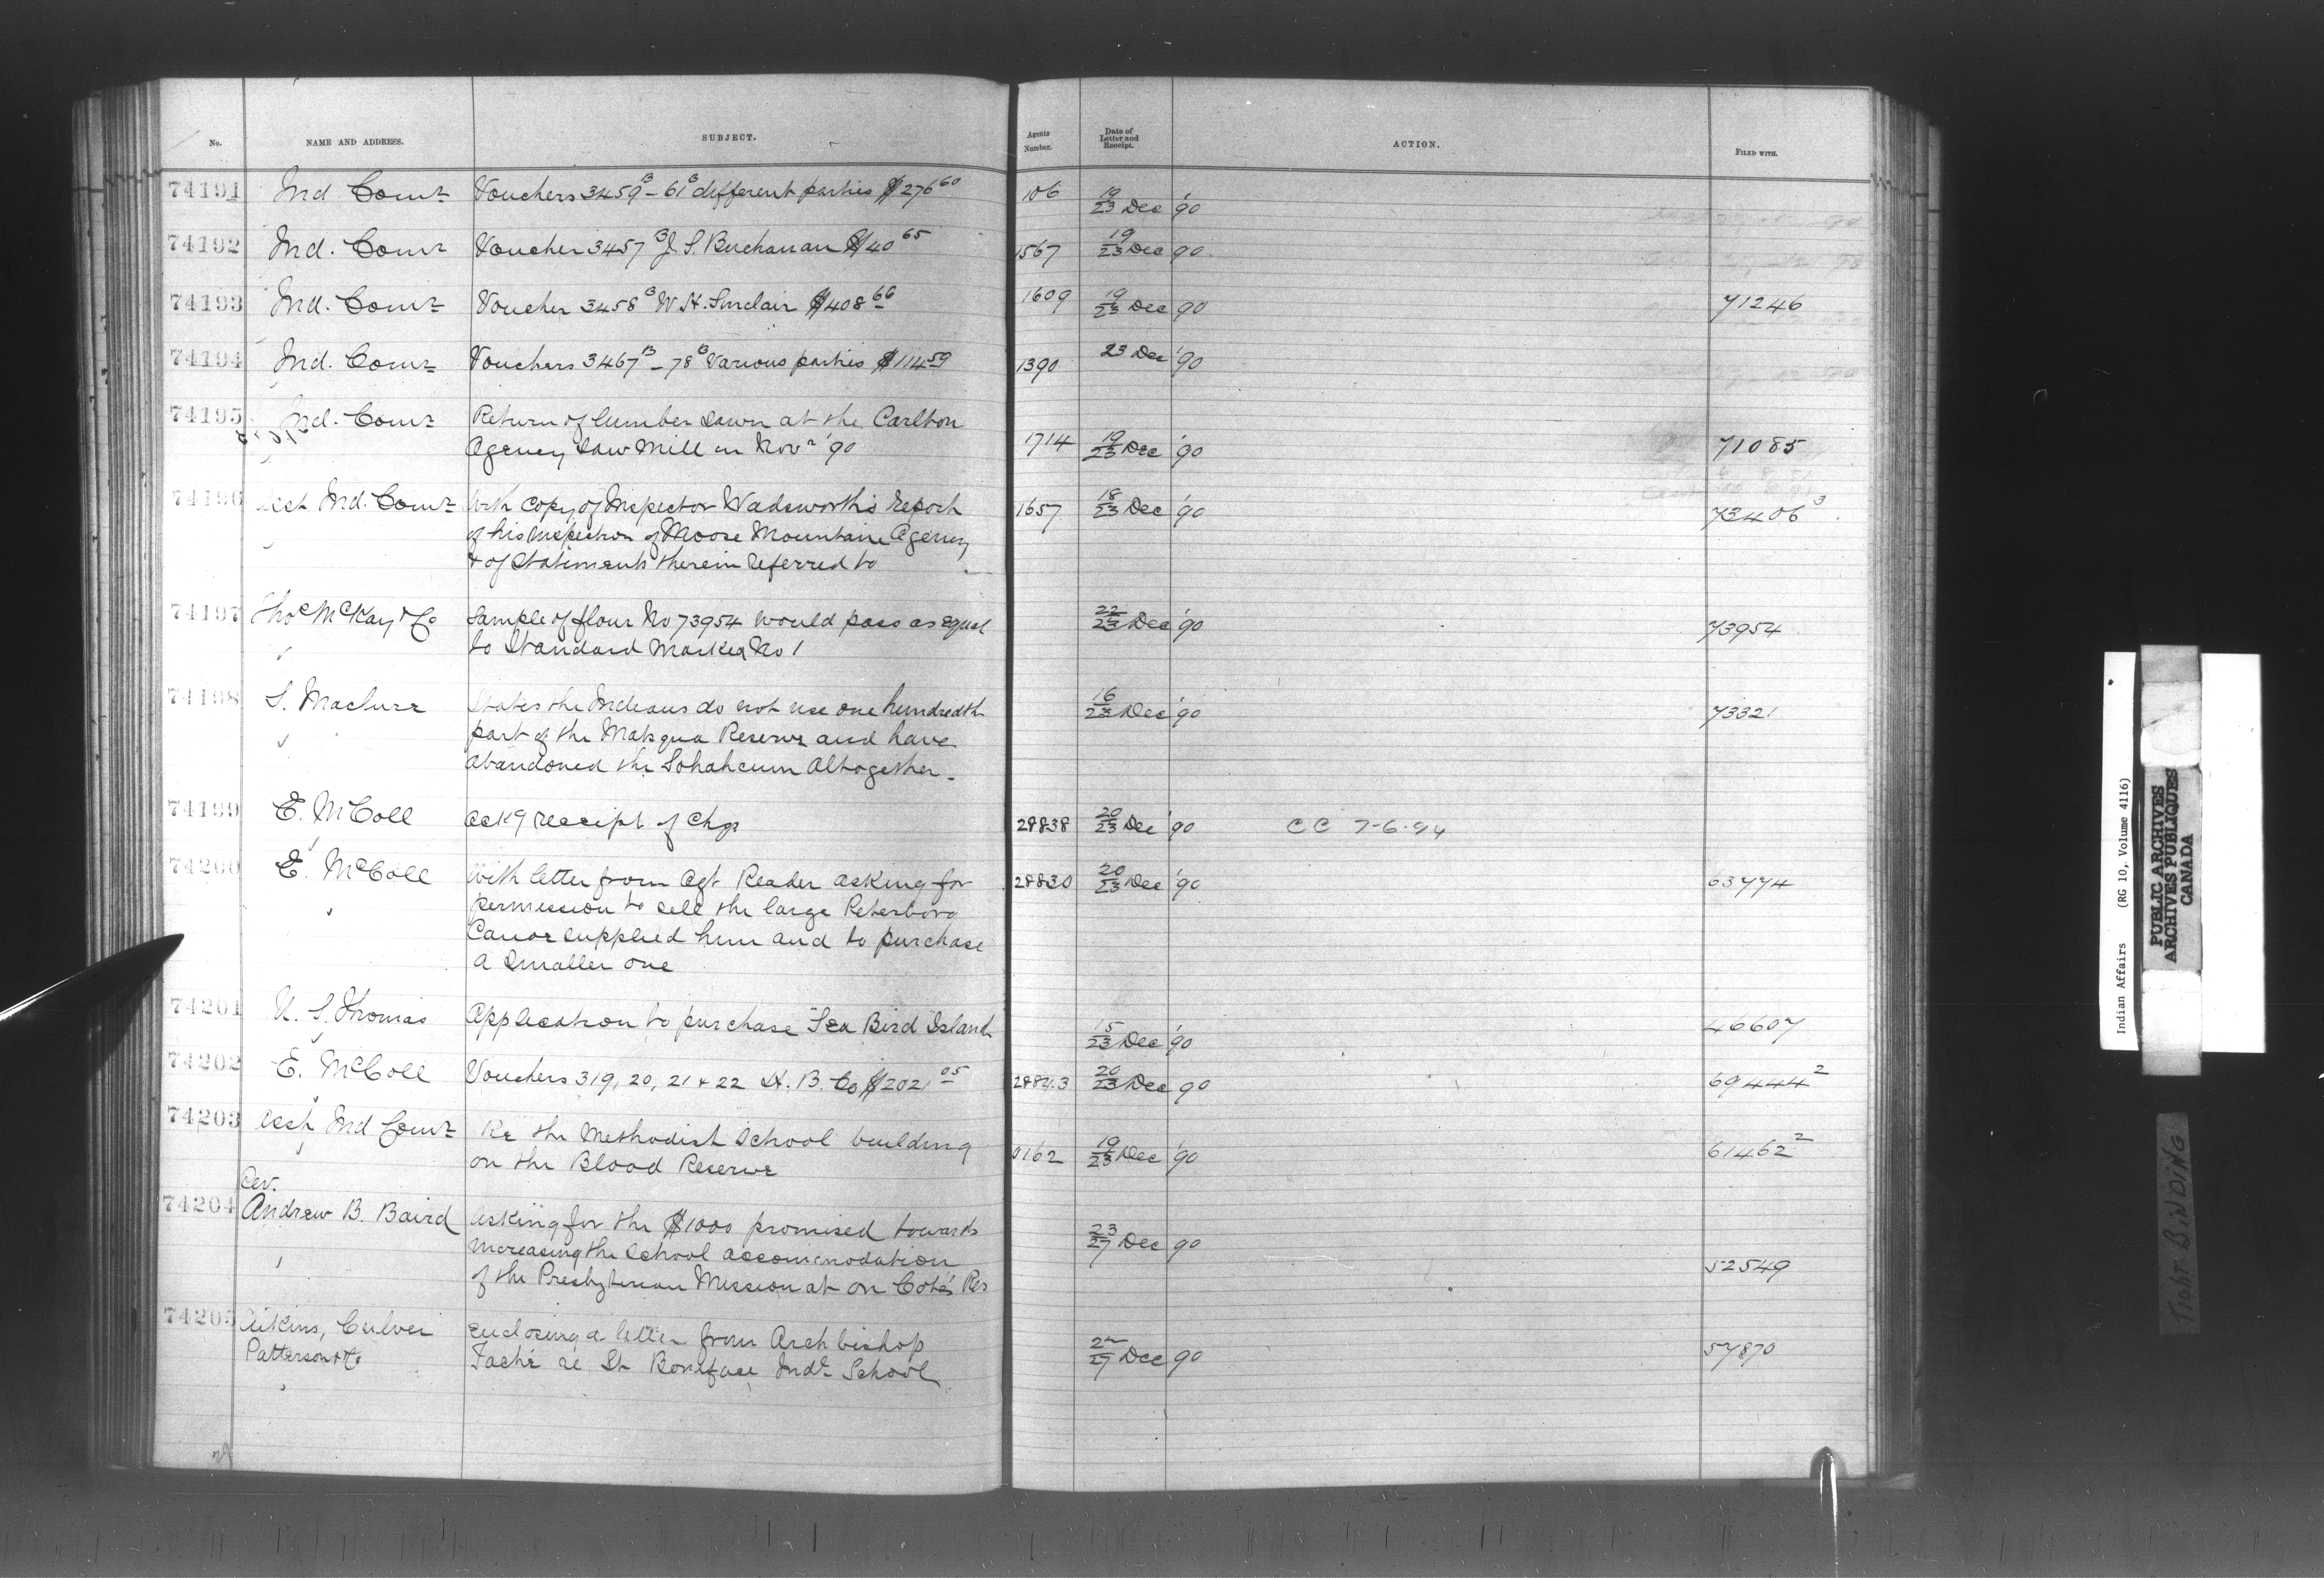 No. NAME AND ADDRESS. SUBJECT. Agents Number. Date of Letter and Receipt. ACTION. FILED WITH.
74191 Ind Comr Vouchers 3459B – 61B different parties $276 60 106 19/23 Dec '90
74192 Ind. Comr Voucher 3457B J. S. Buchanan $40 65 1567 19/23 Dec '90
74193 Ind. Comr Voucher 3458B W. H. Sinclair $408 66 1609 19/23 Dec '90 71246
74194 Ind. Comr Vouchers 3467B – 78B Various parties $114 59 1390 23 Dec '90
74195 Ind. Comr Return of lumber sawn at the Carlton
Agency Saw Mill in Novr '90 1714 19/23 Dec '90 71085
74196 Asst Ind. Comr With copy of Inspector Wadsworth's report 1657 18/23 Dec '90 73406 3
of his inspection of Moose Mountain Agency
& of Statements therein referred to
74197 Thos McKay & Co Sample of flour No 73954 would pass as equal 22/23 Dec '90 73954
to Standard marked No 1
74198 S. Maclure States the Indians do not use one hundredth 16/23 Dec '90 73321
part of the Matsqua Reserve and have
abandoned the Sohahcum Altogether.
74199 E. McColl Ackg receipt of Chqs 28838 20/23 Dec '90 CC 7-6-94
74200 E. McColl With letter from Agt Reader asking for 28830 20/23 Dec '90 63774
permission to sell the large Peterboro
Canoe supplied him and to purchase
a smaller one
74201 U. S. Thomas Application to purchase Sea Bird Island 15/23 Dec '90 46607
74202 E. McColl Vouchers 319, 20, 21 & 22 H. B. Co $2021 05 20/23 Dec 90 69444 2
74203 Asst Ind Comr Re the Methodist School building
on the Blood Reserve 0162 19/23 Dec '90 61462 2
Rev.
74204 Andrew B. Baird Asking for the $1000 promised towards 23/27 Dec 90
increasing the school accommodation
of the Presbyterian Mission at on Cote's Res 52549
74205 Aikins, Culver Enclosing a letter from Archbishop
Patterson & Co Taché re St Boniface Indl School 27 Dec 90 57870
Indian Affairs (RG 10, Volume 4116)
PUBLIC ARCHIVES
ARCHIVES PUBLIQUES
CANADA
TIGHT BINDING